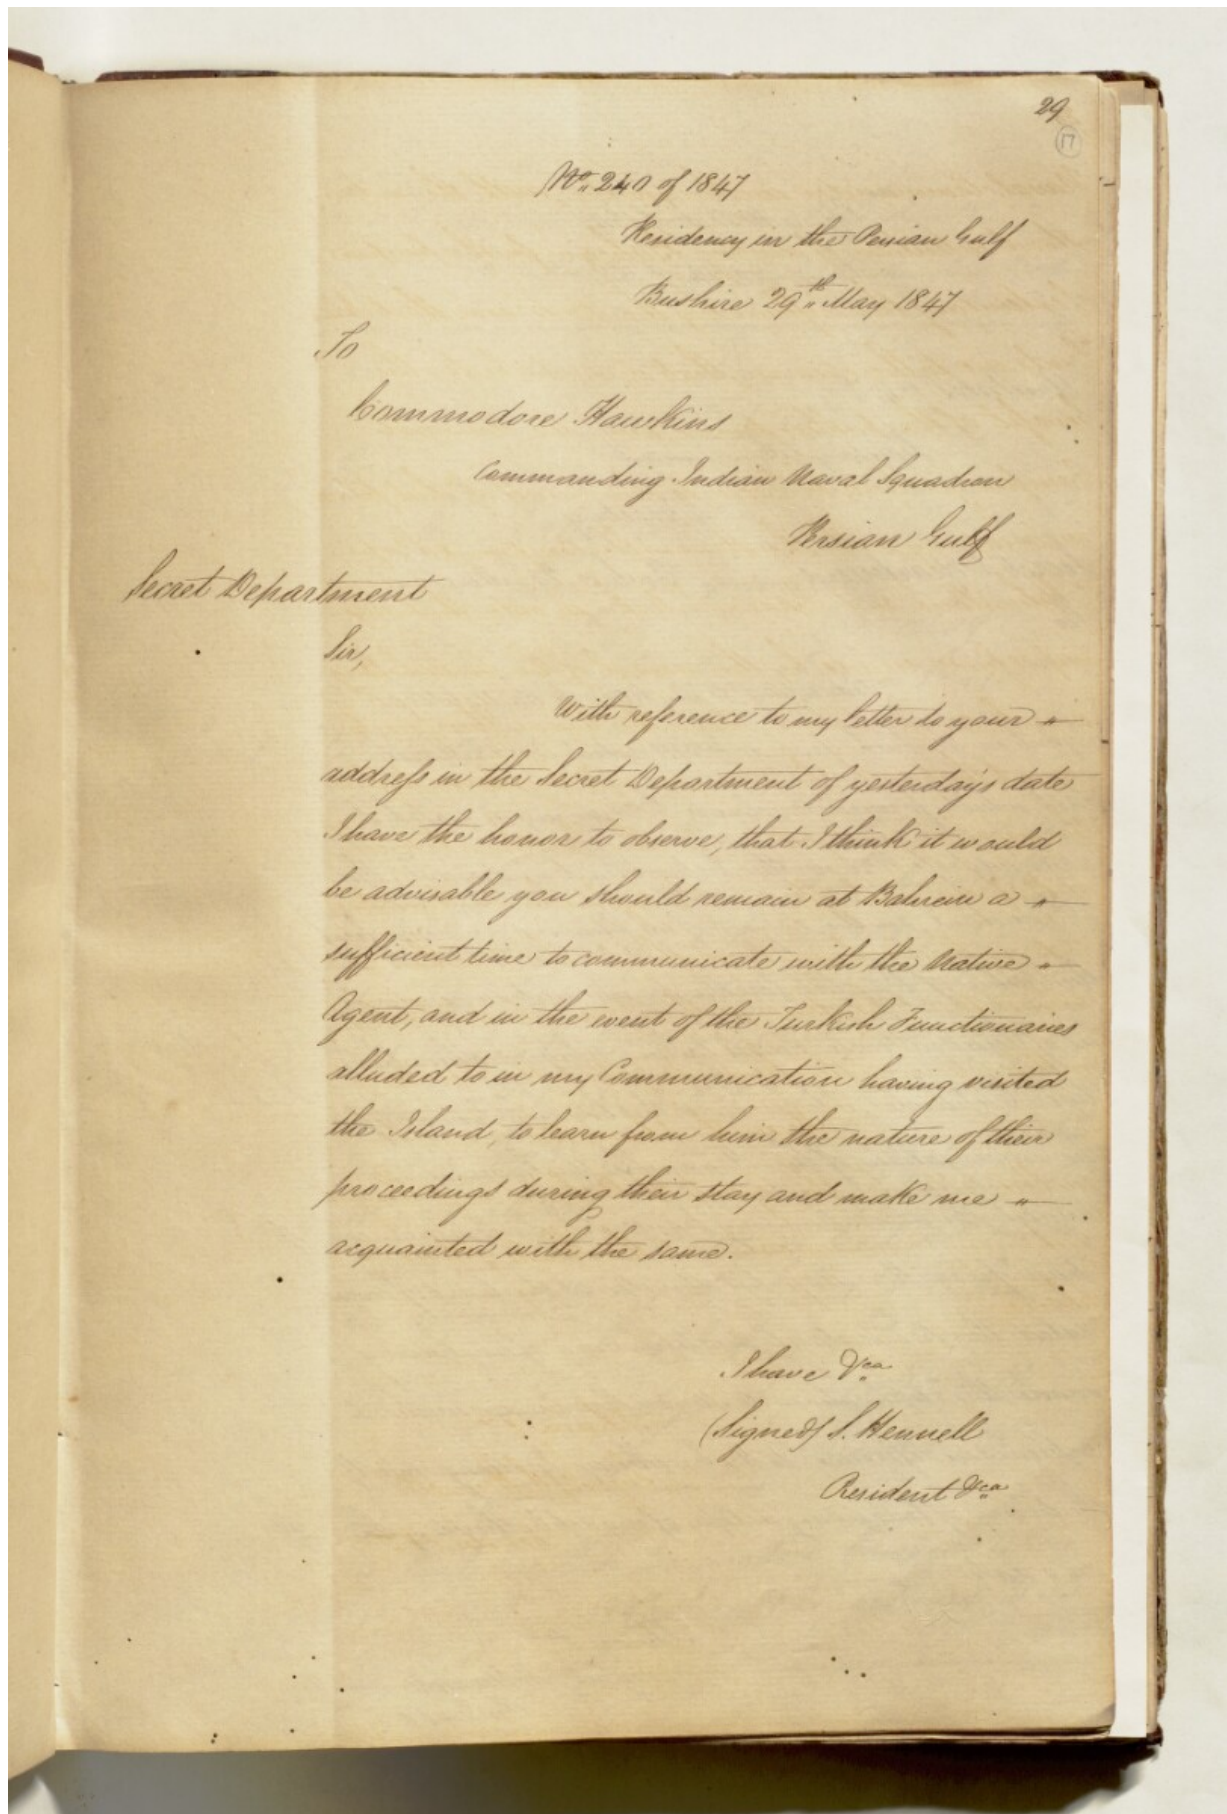 29
17
No. 240 of 1847
Residency in the Persian Gulf
Bushire 29th May 1847
To
Commodore Hawkins
Commanding Indian Naval Squadron
Persian Gulf
Secret Department
Sir,
With reference to my letter to your "
addreſs in the Secret Department of yesterday's date
I have the honor to observe, that I think it would
be advisable you should remain at Bahrein a "
sufficient time to communicate with the Native "
Agent, and in the event of the Turkish Functionaries
alluded to in my Communication having visited
the Island, to learn from him the nature of their
proceedings during their stay and make me "
acquainted with the same.
I have &ca
(Signed) S. Hennell
Resident &ca